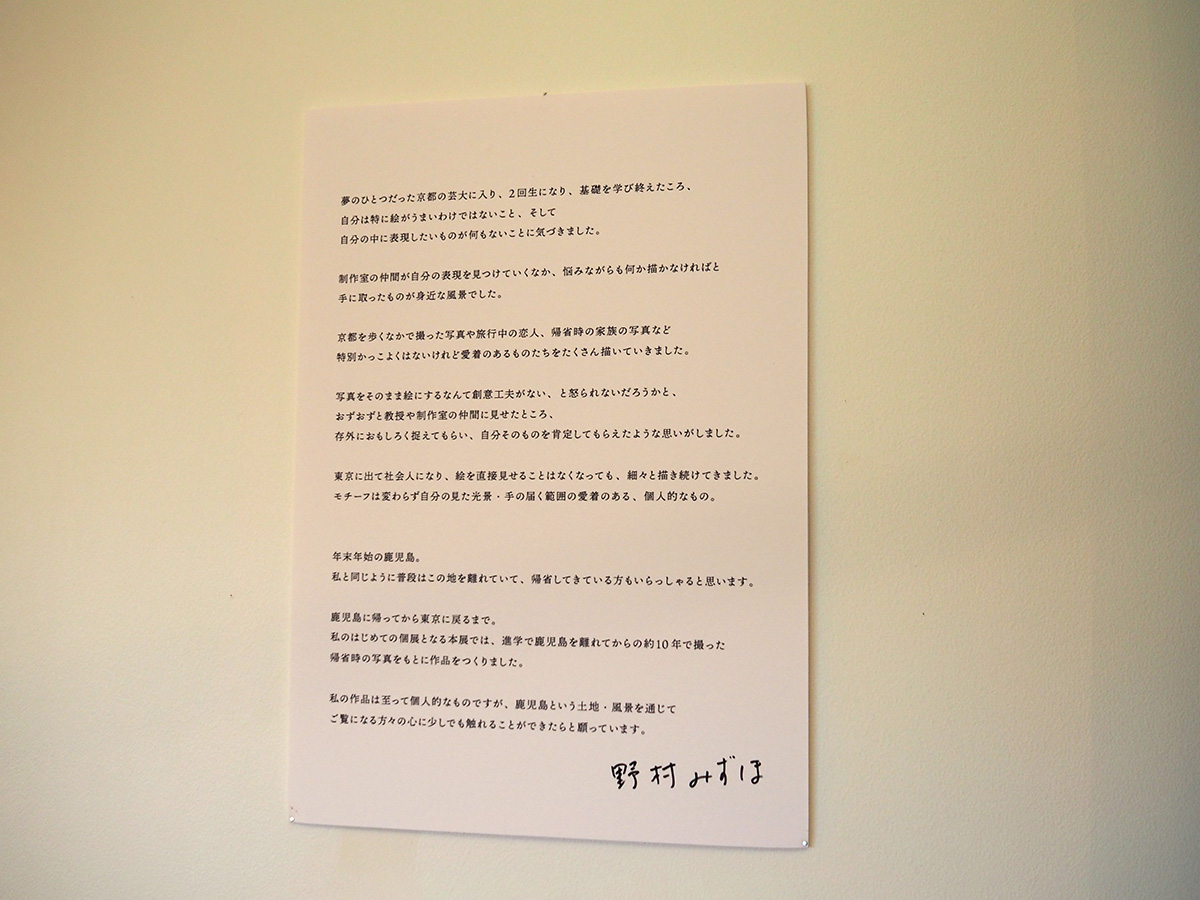 夢のひとつだった京都の芸大に入り、2回生になり、基礎を学び終えたころ、
自分は特に絵がうまいわけではないこと、そして
自分の中に表現したいものが何もないことに気づきました。
制作室の仲間が自分の表現を見つけていくなか、悩みながらも何か描かなければと
手に取ったものが身近な風景でした。
京都を歩くなかで撮った写真や旅行中の恋人、帰省時の家族の写真など
特別かっこよくはないけれど愛着のあるものたちをたくさん描いていきました。
写真をそのまま絵にするなんて創意工夫がない、と怒られないだろうかと、
おずおずと教授や制作室の仲間に見せたところ、
存外におもしろく捉えてもらい、自分そのものを肯定してもらえたような思いがしました。
東京に出て社会人になり、絵を直接見せることはなくなっても、細々と描き続けてきました。
モチーフは変わらず自分の見た光景・手の届く範囲の愛着のある、個人的なもの。
年末年始の鹿児島。
私と同じように普段はこの地を離れていて、帰省してきている方もいらっしゃると思います。
鹿児島に帰ってから東京に戻るまで。
私のはじめての個展となる本展では、進学で鹿児島を離れてからの約10年で撮った
帰省時の写真をもとに作品をつくりました。
私の作品は至って個人的なものですが、鹿児島という土地・風景を通じて
ご覧になる方々の心に少しでも触れることができたらと願っています。
野村みずほ